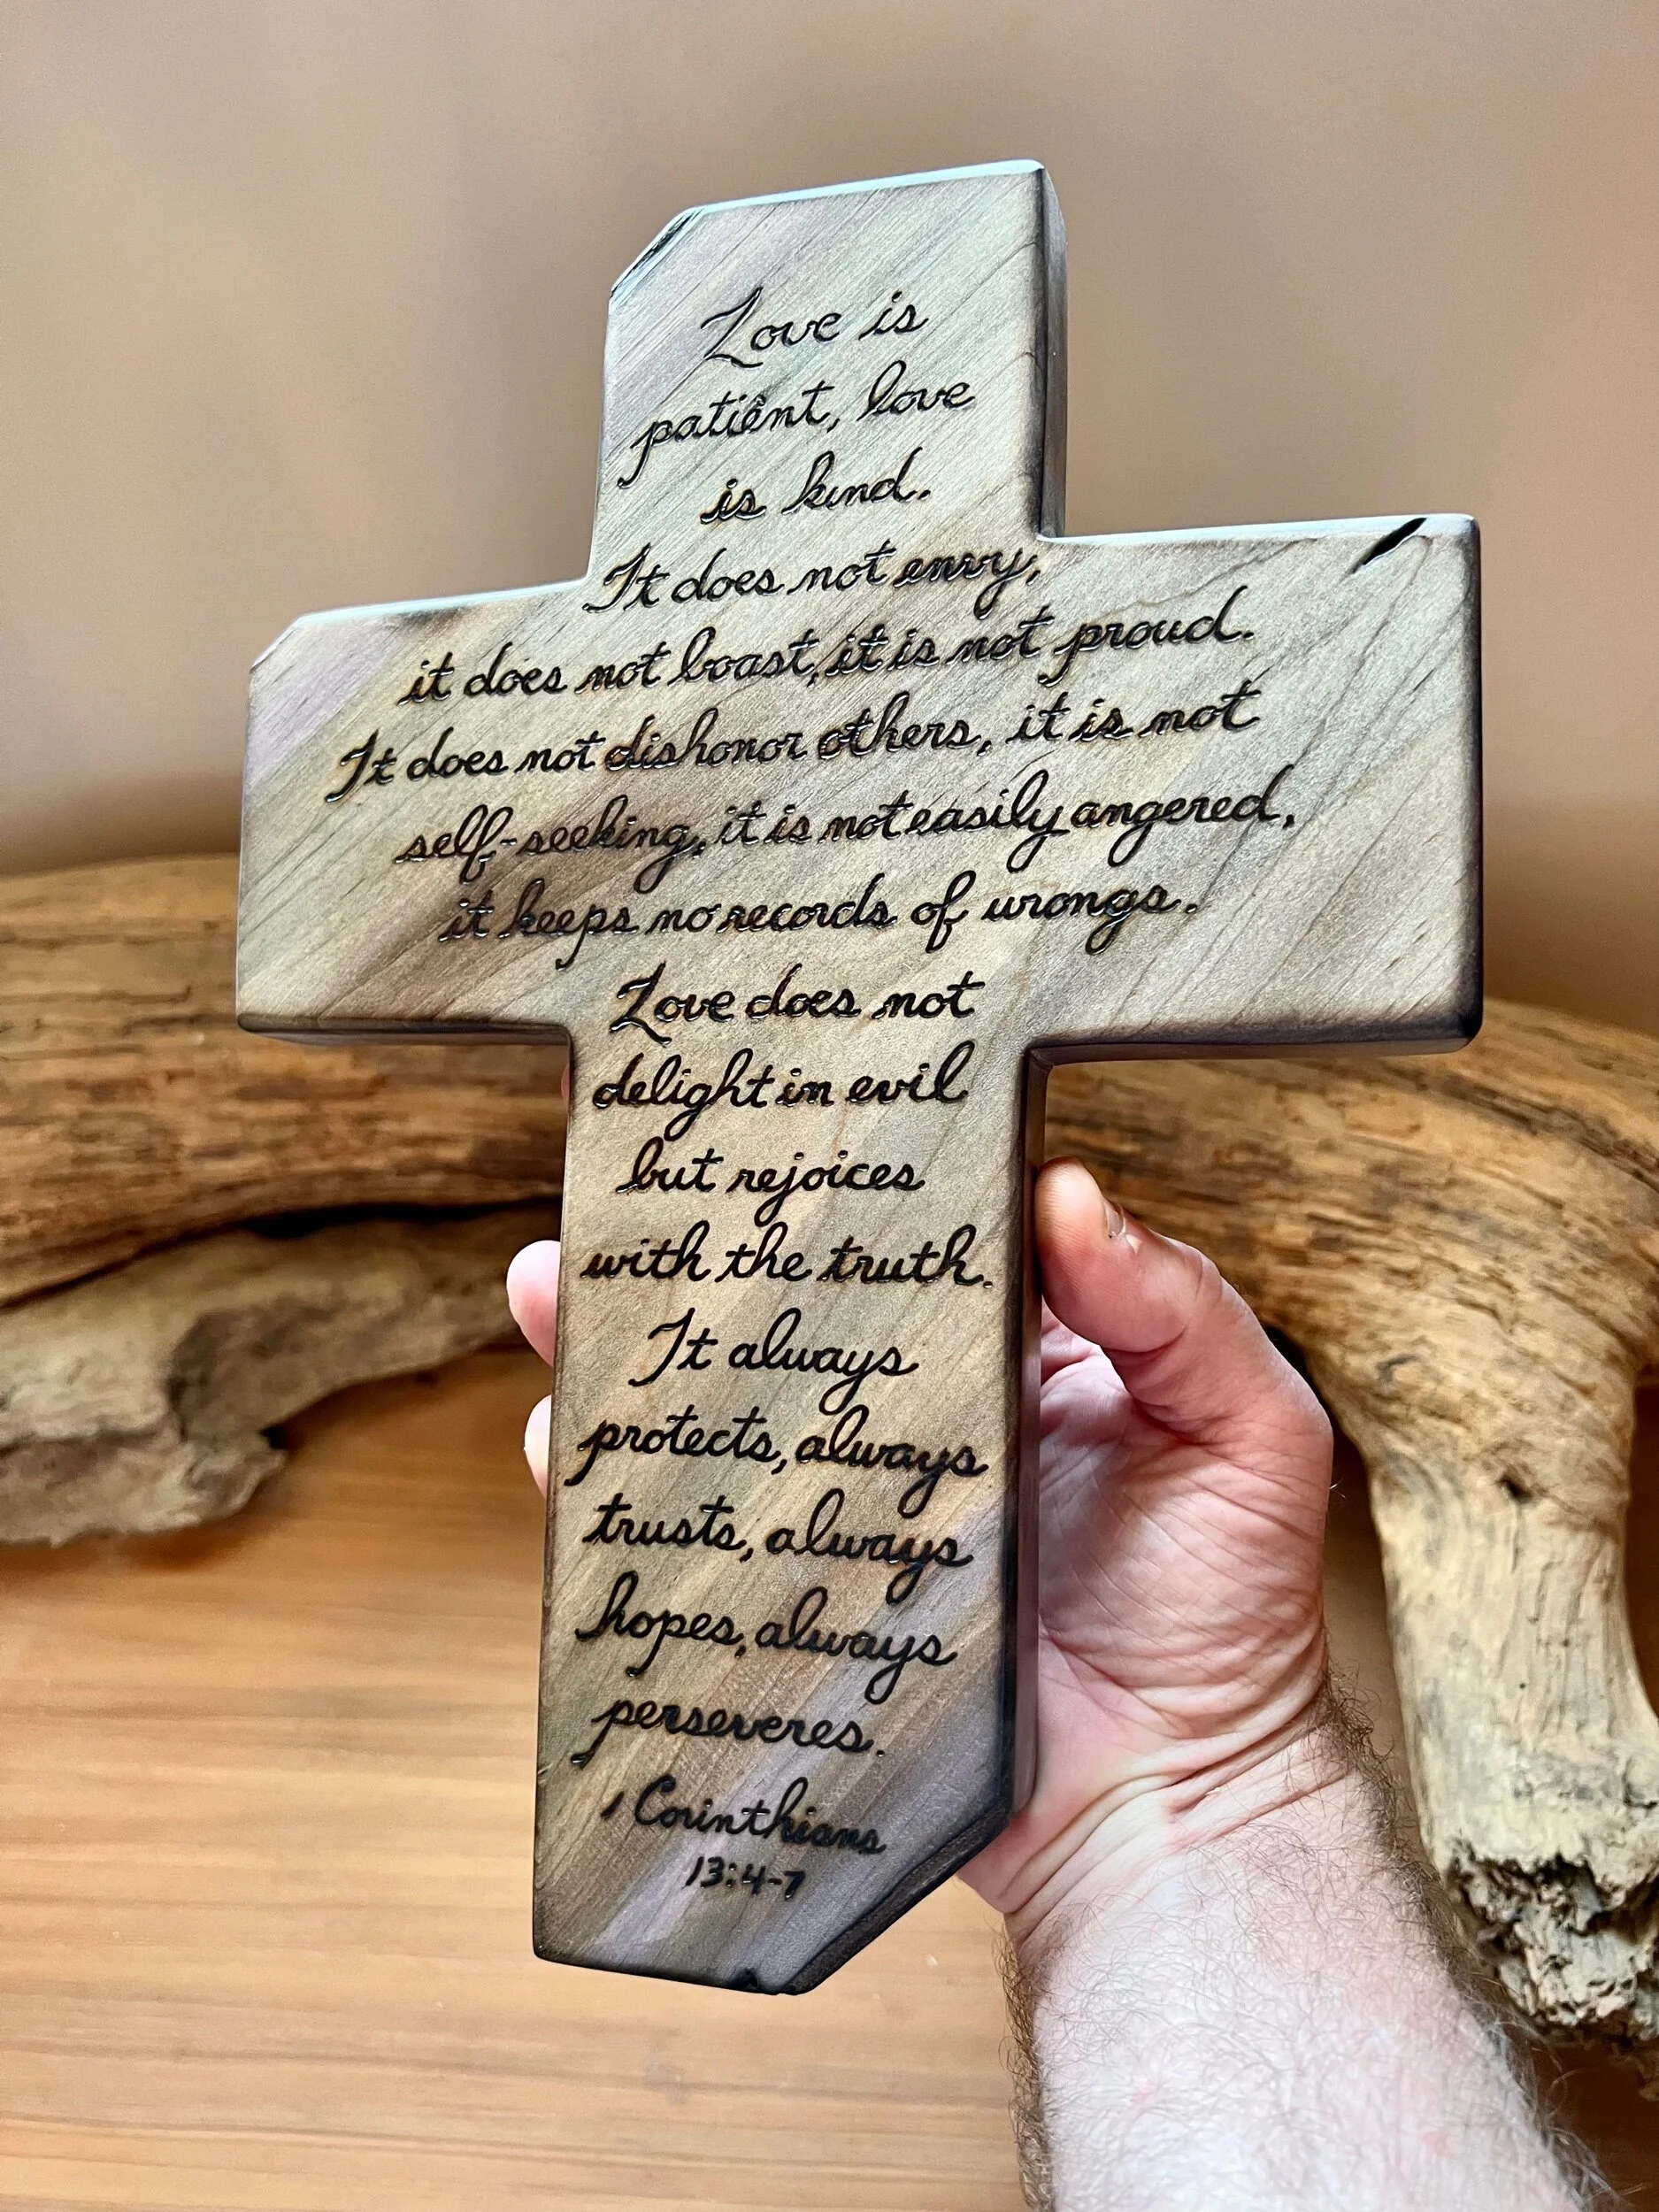 Love is
patient, love
is kind.
It does not envy,
it does not boast, it is not proud.
It does not dishonor others, it is not
self-seeking, it is not easily angered,
it keeps no records of wrongs.
Love does not
delight in evil
but rejoices
with the truth.
It always
protects, always
trusts, always
hopes, always
perseveres.
1 Corinthians
13:4-7